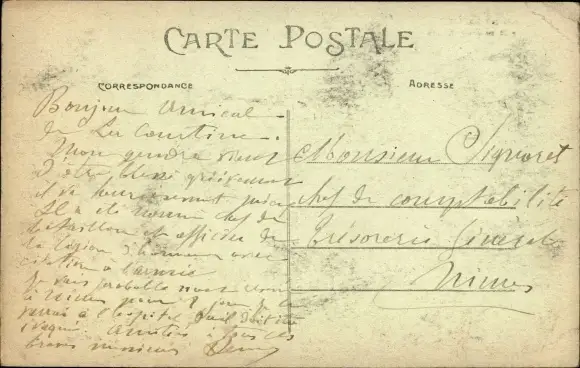 CARTE POSTALE
CORRESPONDANCE
ADRESSE
Bonjour amical
de La Courtine.
Mon gendre vient
d'être blessé grièvement
Il a été nommé chef de
bataillon et officier de
la légion d'honneur avec
citation à l'armée
Je vais
pour 8 jours je
à l'hopital
amitiés à tous ces
braves messieurs
Monsieur Signoret
chef de comptabilité
Trésorerie Générale
Nimes